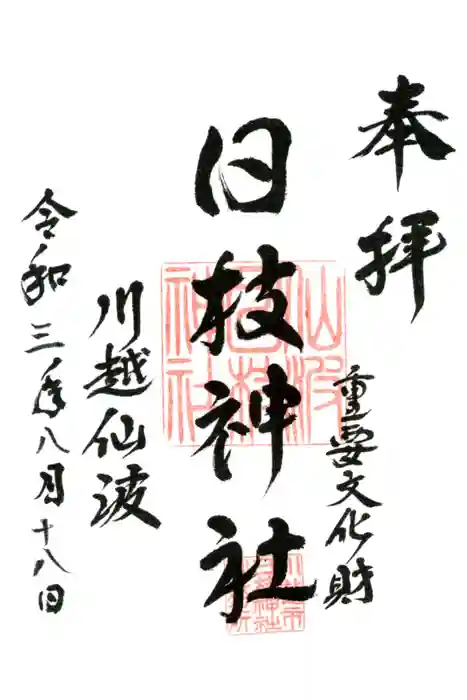 奉拝
重要文化財
日枝神社
川越仙波
令和三年八月十八日
仙波
日枝
神社